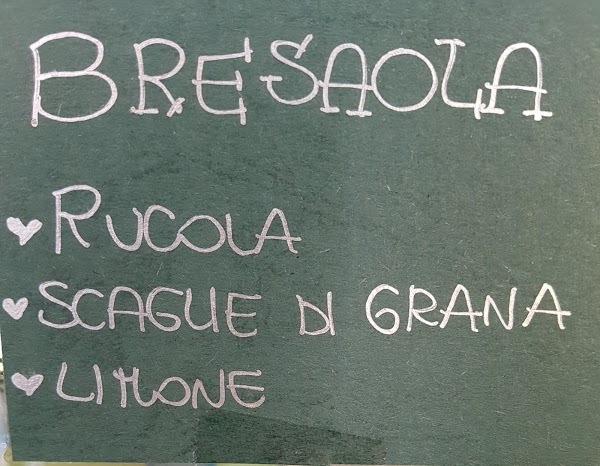 BRESAOLA
RUCOLA
SCAGLIE DI GRANA
LIMONE